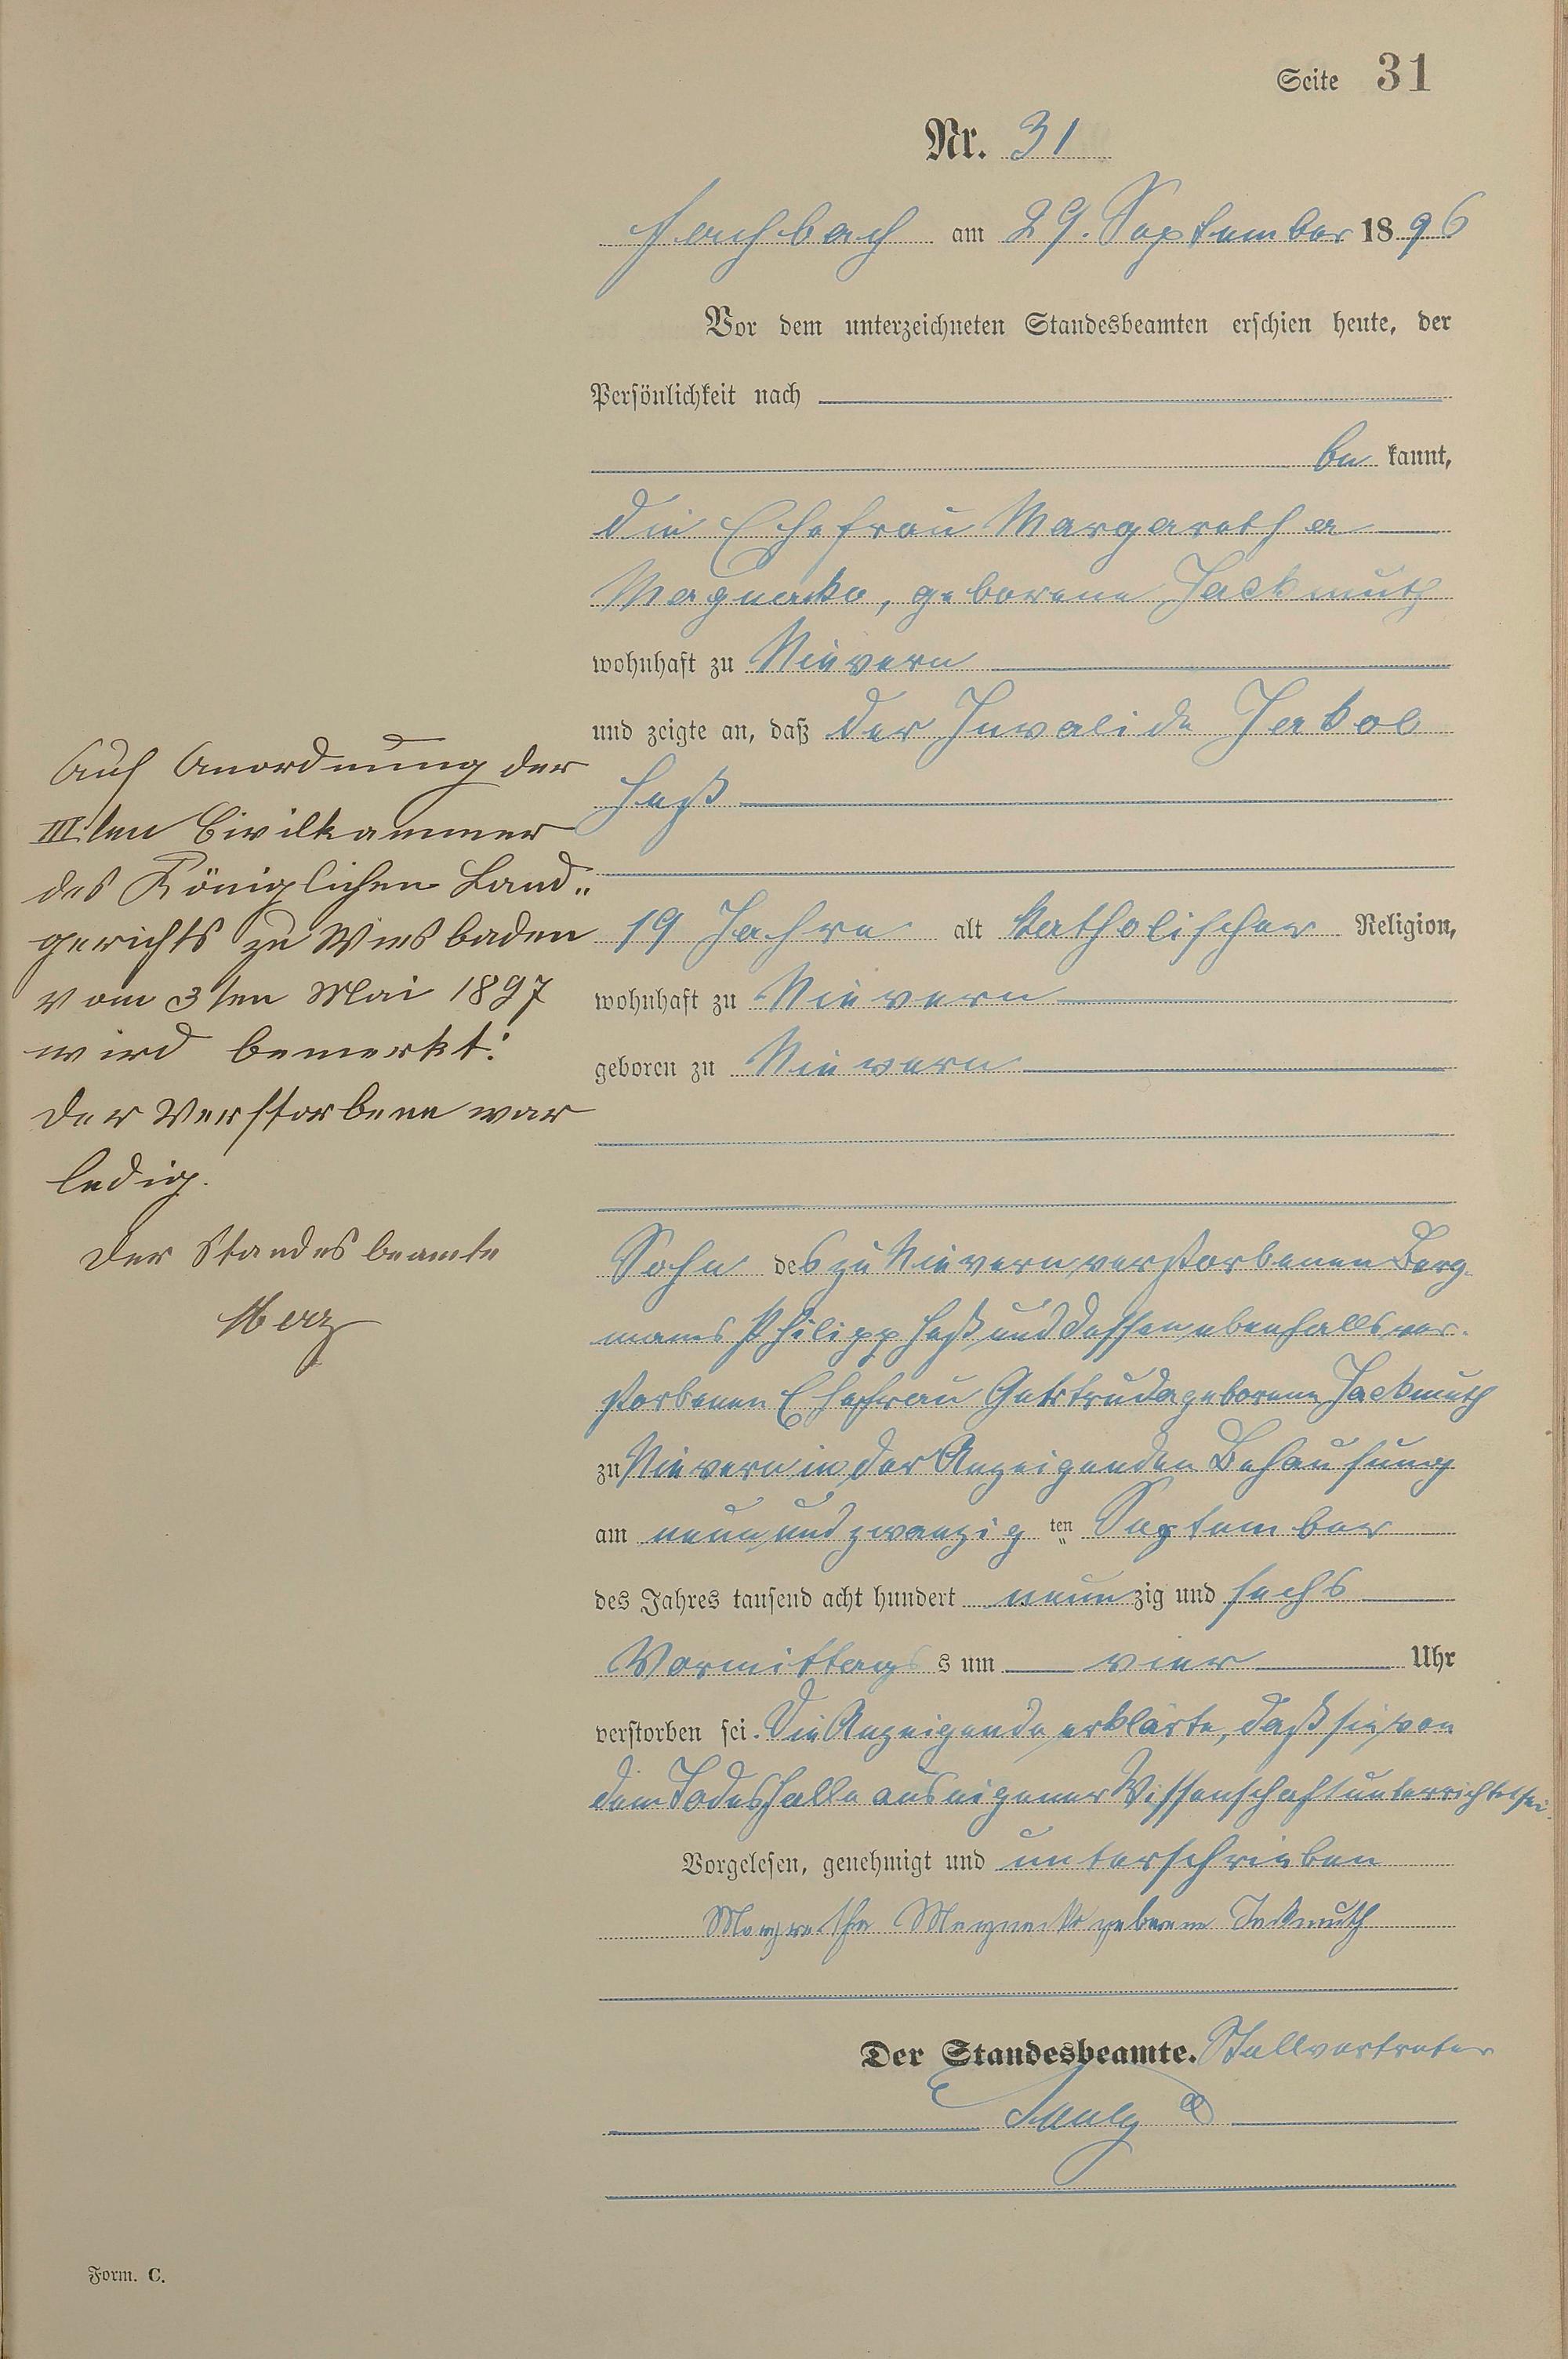 Seite 31
Nr. 31
Fachbach am 29. September 1896
Vor dem unterzeichneten Standesbeamten erschien heute, der
Persönlichkeit nach
be kannt,
die Ehefrau Margaretha
geborene Jackmuth
wohnhaft zu Nievern
und zeigte an, daß der Invalide Jakob
Heß
19 Jahre alt katholischer Religion,
wohnhaft zu Nievern
geboren zu Nievern
Sohn des zu Nievern verstorbenen Berg-
manns Philipp Heß und dessen ebenfalls ver-
storbenen Ehefrau Gertruda geborene Jackmuth
zu Nievern in der Anzeigenden Behausung
am neunundzwanzig ten September
des Jahres tausend acht hundert neunzig und sechs
Vormittags s um vier Uhr
verstorben sei. Die Anzeigende erklärte, daß sie von
dem Todesfalle aus eigener Wissenschaft unterrichtet sei.
Vorgelesen, genehmigt und unterschrieben
geborene Jackmuth
Der Standesbeamte. Stellvertreter
Auf Anordnung der
III ten Civilkammer
des Königlichen Land„
gerichts zu Wiesbaden
vom 3ten Mai 1897
wird bemerkt:
Der Verstorbene war
ledig.
Der Standesbeamte
Form. C.